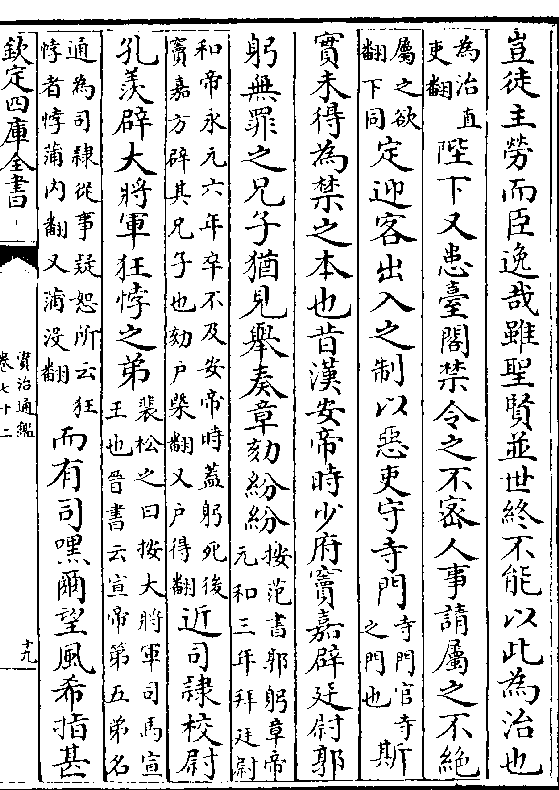 豈徒主勞而臣逸哉雖聖賢並世終不能以此為治也
為治直
吏翻
陛下又患臺閣禁令之不密人事請屬之不絶
屬之欲
翻下同
定迎客出入之制以惡吏守寺門
寺門官寺
之門也
斯
實未得為禁之本也昔漢安帝時少府竇嘉辟廷尉郭
躬無罪之兄子猶見舉奏章劾紛紛
按范書郭躬章帝
元和三年拜廷尉
和帝永元六年卒不及安帝時蓋躬死後
竇嘉方辟其兄子也劾戶槩翻又戶得翻
近司隷校尉
孔羨辟大將軍狂悖之弟
裴松之曰按大將軍司馬宣
王也晉書云宣帝第五弟名
通為司隷從事疑恕所云狂
悖者悖蒲内翻又蒲没翻
而有司嘿爾望風希指甚
欽定四庫全書
資治通鑑
卷七十二
十九